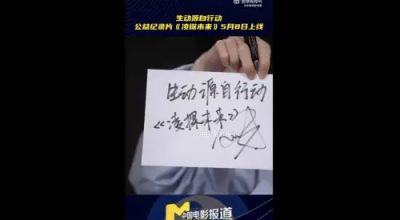 生动源自行动
公益纪录片《凌探未来》5月8日上线
生动源自行动
《凌探未来》
中国电影报道